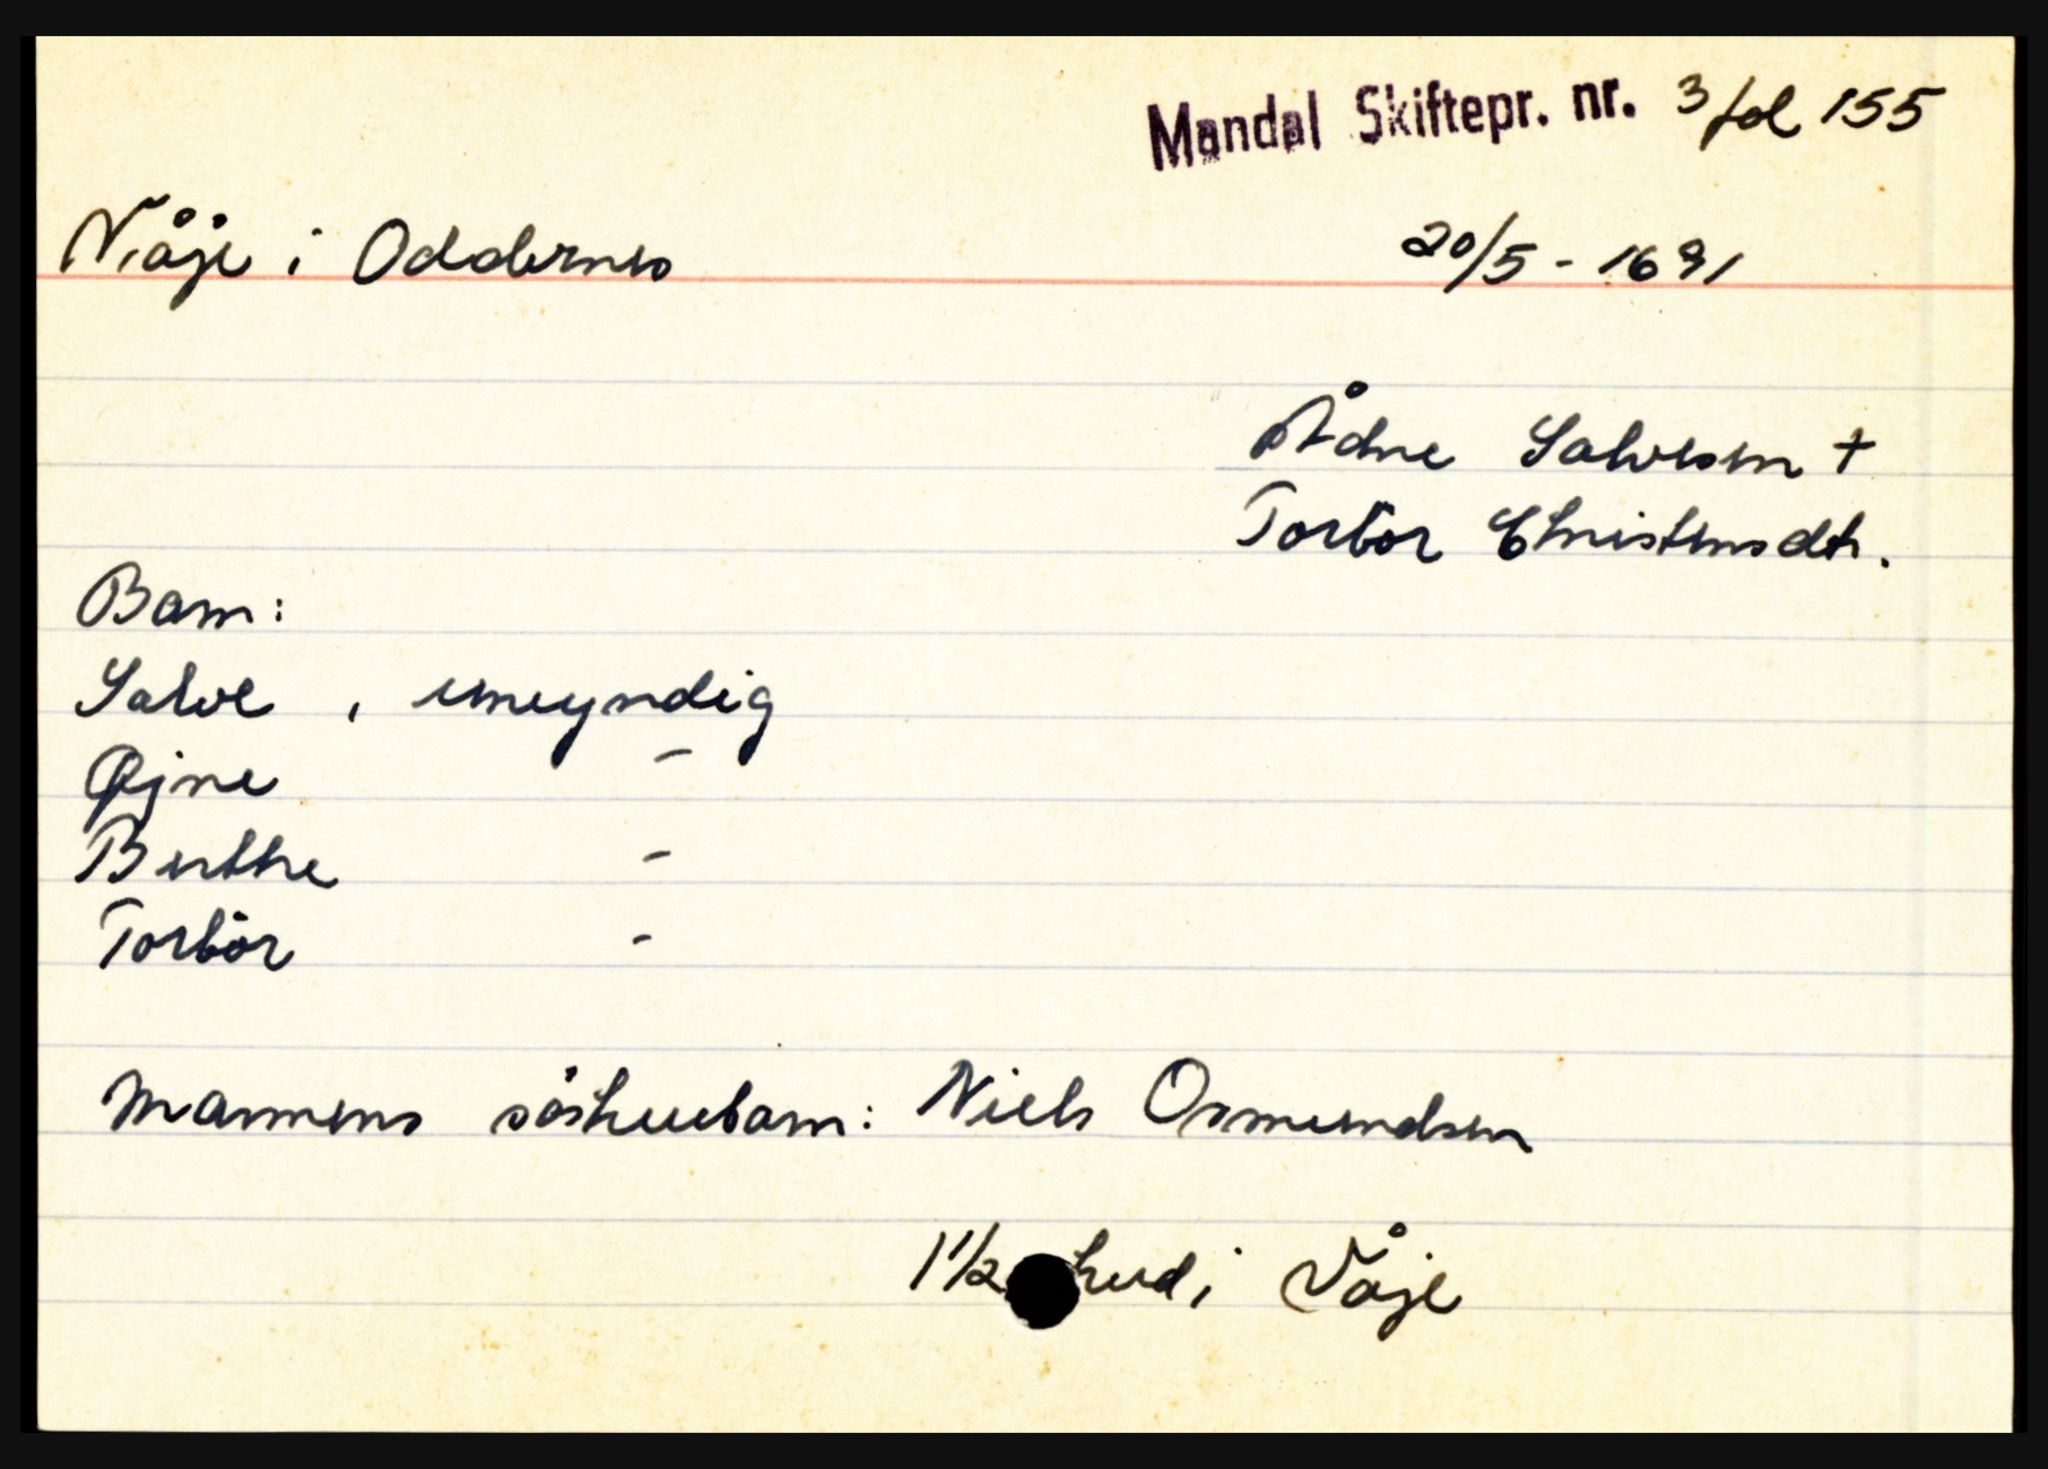 Mandal Skiftepr. nr. 3 fol 155
Våje i Oddernes 20/5 - 1691
Ådne Salvesen +
Torbör Christensdtr.
Barn:
Salve , umyndig
Øjne -
Berthe -
Torbör -
Mannens söskenbarn: Niels Osmundsen
1 1/2 hud i Våje